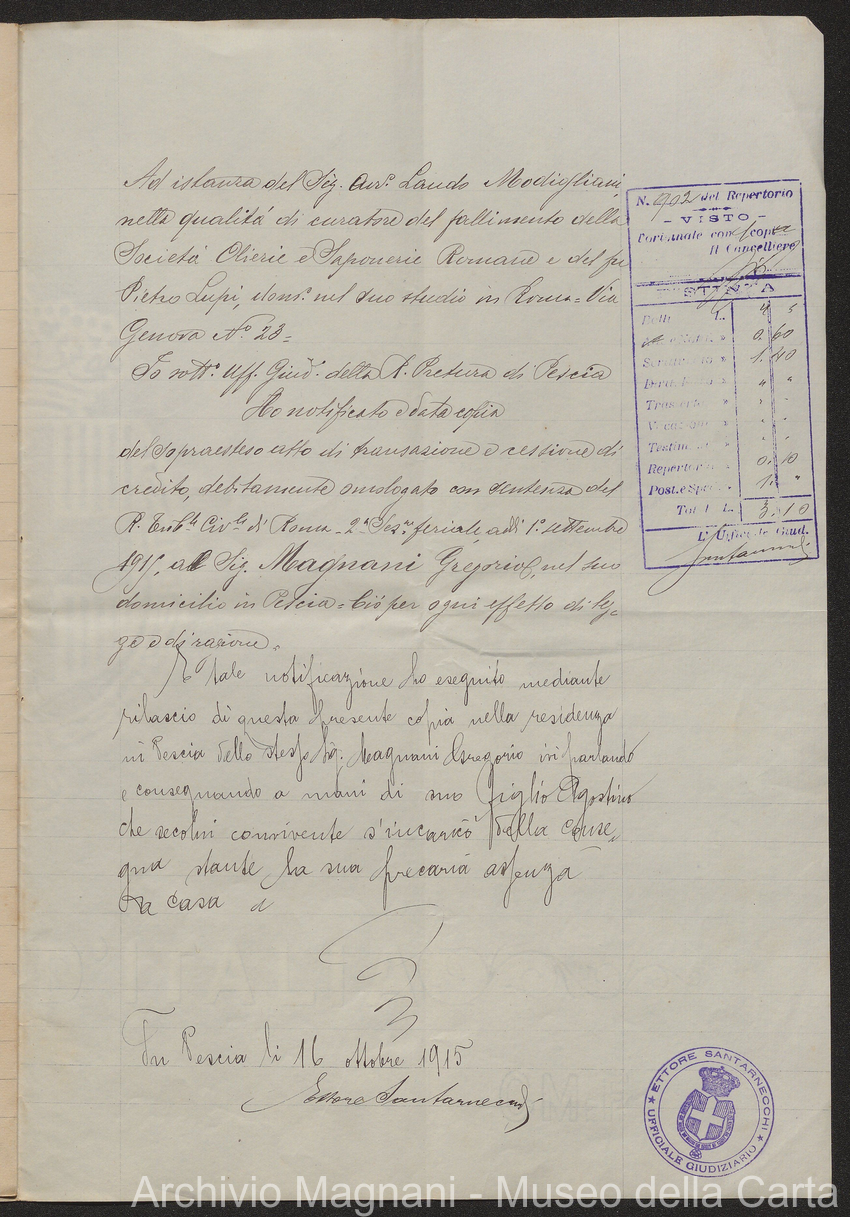 Ad istanza del Sig. Avv.º Lando Modigliani,
nella qualitá di curatore del fallimento della
Societá Olierie e Saponerie Romane e del fu
Pietro Lupi, dom.º nel suo studio in Roma = Via
Genova Nº 23 =
Io sott.º Uff. Giud. della R. Pretura di Pescia
Ho notificato e data copia
del sopraesteso atto di transazione e cessione di
credito, debitamente omologato con sentenza del
R. Trib.le Civ.le di Roma - 2ª Sez.ne feriale, addì 1º settembre
1915, al Sig. Magnani Gregorio, nel suo
domicilio in Pescia = Ció per ogni effetto di leg=
ge e di ragione.
E tale notificazione ho eseguito mediante
rilascio di questa presente copia nella residenza
in Pescia dello stesso Sig. Magnani Gregorio ivi parlando
e consegnando a mani di suo figlio Agostino
che secolui convivente s'incaricó della conse„
gna stante la sua precaria assenza
da casa
In Pescia li 16 ottobre 1915
Ettore Santarnecchi
N. 902 del Repertorio
- VISTO -
l'originale con copia
Il Cancelliere
L.
0. 60
1. 40
Repertorio 0. 10
Post. e Spe 1. "
Tot L. 3. 10
L'Ufficiale Giud.
Santarnecchi
ETTORE SANTARNECCHI
UFFICIALE GIUDIZIARIO
Archivio Magnani - Museo della Carta